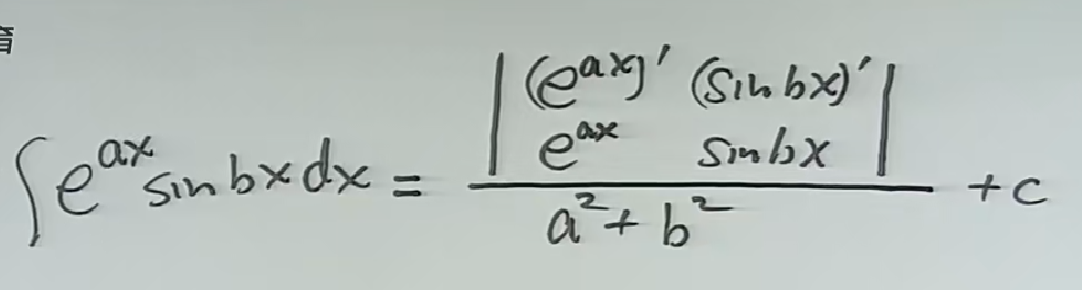 育
∫e^{ax} sin bx dx = \frac{\begin{vmatrix} (e^{ax})' & (sin bx)' \\ e^{ax} & sin bx \end{vmatrix}}{a^2 + b^2} + c